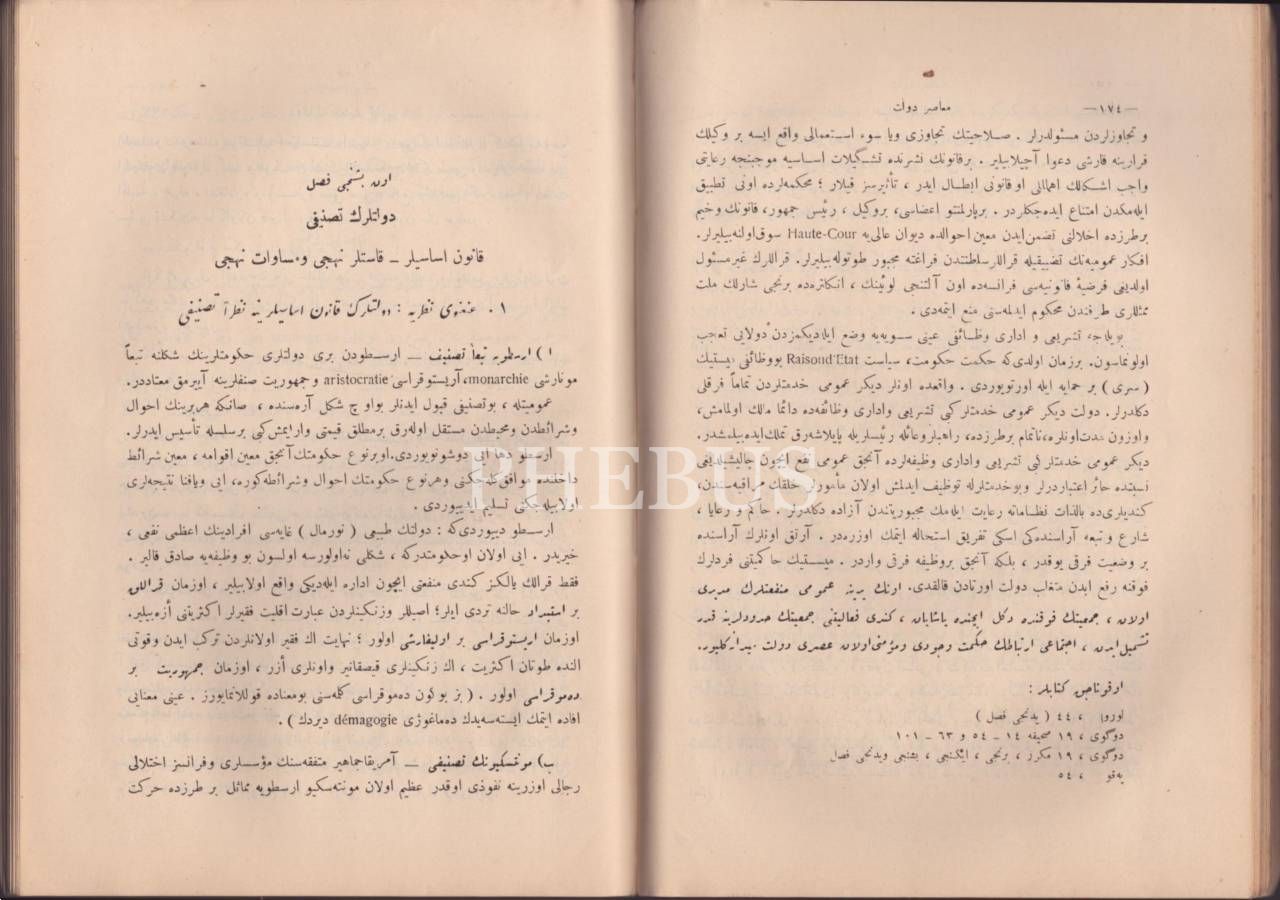 —١٧٤— معاصر دولت
و تجاوزلردن مسئولدرلر . صلاحيتك تجاوزى ويا سوء استعمالى واقع ايسه بر وكيلك
قرارينه قارشى دعوا آچيلابيلير . برقانونك نشرنده تشكيلات اساسيه موجبنجه رعايتى
واجب اشكالك اهمالى اوقانونى ابطال ايدر ، تأثيرسز قيلار ؛ محكمه‌لرده اونى تطبيق
ايله‌مكدن امتناع ايده‌جكلردر . برپارلمنتو اعضاسى، بروكيل ، رئيس جمهور، قانونك وخيم
برطرزده اخلالنى تضمن‌ايدن معين احوالده ديوان عالى‌يه Haute-Cour سوق‌اولنه‌بيليرلر.
افكار عموميه‌نك تضييقيله قراللر سلطنتدن فراغته مجبور طوتوله‌بيليرلر. قراللرك غيرمسئول
اولديغى فرضيۀ قانونيه‌سى فرانسه‌ده اون آلتنجى لوئينك ، انكلتره‌ده برنجى شارلك ملت
ممثللرى طرفندن محكوم ايدلمه‌سنى منع ايتمه‌دى .
بويله‌جه تشريعى و ادارى وظائفى عينى سويه‌يه وضع ايله‌ديكمزدن دولايى تعجب
اولونماسون. برزمان اولدى‌كه حكمت حكومت، سياست Raisond'Etat بووظائفى ميستيك
( سرى ) بر حمايه ايله اورتويوردى . واقعده اونلر ديكر عمومى خدمتلردن تماماً فرقلى
دكلدرلر. دولت ديكر عمومى خدمتلركى تشريعى وادارى وظائفه‌ده دائما مالك اولمامش،
واوزون مدت‌اونلره،ناتمام برطرزده، راهبلروعائله رئيسلريله پايلاشه‌رق تملك‌ايده‌بيلمشدر.
ديكر عمومى خدمتلركى تشريعى وادارى وظيفه‌لرده آنجق عمومى نفع ايچون چاليشيلديغى
نسبتده حائز اعتباردرلر وبوخدمتلرله توظيف ايدلمش اولان مأمورلر خلقك مراقبه‌سندن،
كنديلرى‌ده بالذات نظاماته رعايت ايله‌مك مجبوريتندن آزاده دكلدرلر . حاكم و رعايا ،
شارع و تبعه آراسنده‌كى اسكى تفريق استحاله ايتمك اوزره‌در . آرتق اونلرك آراسنده
بر وضعيت فرقى يوقدر ، بلكه آنجق بروظيفه فرقى واردر . ميستيك حاكميتنى فردلرك
فوقنه رفع ايدن متغلب دولت اورتادن قالقدى. اونك يرينه عمومى منفعتلرك مديرى
اولان ، جمعيتك فوقنده دكل ايچنده ياشايان ، كندى فعاليتنى جمعيتك حدودلرينه قدر
تشميل‌ايدن ، اجتماعى ارتباطك حكمت وجودى ومؤمنى‌اولان عصرى دولت ميدانه‌كليور.
اوقوناجق كتابلر :
لوروا ، ٤٤ ( يدنجى فصل )
دوگوى ، ١٩ صحيفه ١٤ - ٥٤ و ٦٣ - ١٠١
دوگوى ، ١٩ مكرر ، برنجى ، ايكنجى ، بشنجى ويدنجى فصل
يه‌قو ، ٥٤
اون بشنجى فصل
دولتلرك تصنيفى
قانون اساسيلر - قاستلر نهجى ومساوات نهجى
١ . عنعنوى نظريه : دولتلرك قانون اساسيلرينه نظراً تصنيفى
ا ) ارسطويه تبعاً تصنيف — ارسطودن برى دولتلرى حكومتلرينك شكلنه تبعاً
مونارشى monarchie، آريستوقراسى aristocratie وجمهوريت صنفلرينه آييرمق معتاددر.
عموميتله ، بوتصنيفى قبول ايدنلر بواوچ شكل آره‌سنده ، صانكه هربرينك احوال
وشرائطدن ومحيطدن مستقل اوله‌رق برمطلق قيمتى وارايمش‌كى برسلسله تأسيس ايدرلر.
ارسطو دها ايى دوشونويوردى.اوبرنوع حكومتك آنجق معين اقوامه ، معين شرائط
داخلنده موافق‌كله‌جكنى وهرنوع حكومتك احوال وشرائطه‌كوره، ايى ويافنا نتيجه‌لرى
اولابيله‌جكنى تسليم ايدييوردى .
ارسطو دييوردى‌كه : دولتك طبيعى ( نورمال ) غايه‌سى افرادينك اعظمى نفعى ،
خيريدر . ايى اولان اوحكومتدركه ، شكلى نه‌اولورسه اولسون بو وظيفه‌يه صادق قالير .
فقط قرالك يالكز كندى منفعتى ايچون اداره ايله‌ديكى واقع اولابيلير ، اوزمان قراللق
بر استبداد حالنه تردى ايلر؛ اصيللر وزنكينلردن عبارت اقليت فقيرلر اكثريتنى أزه‌بيلير.
اوزمان اريستوقراسى بر اوليغارشى اولور ؛ نهايت اك فقير اولانلردن تركب ايدن وقوتى
النده طوتان اكثريت ، اك زنكينلرى قيصقانير واونلرى أزر ، اوزمان جمهوريت بر
ده‌موقراسى اولور . ( بز بوكون ده‌موقراسى كلمه‌سنى بومعناده قوللانمايورز . عينى معنايى
افاده ايتمك ايسته‌سه‌يدك ده‌ماغوژى démagogie ديردك ) .
ب) مونتسكيونك تصنيفى — آمريقاجماهير متفقه‌سنك مؤسسلرى وفرانسز اختلالى
رجالى اوزرينه نفوذى اوقدر عظيم اولان مونته‌سكيو ارسطويه مماثل بر طرزده حركت
PHEBUS